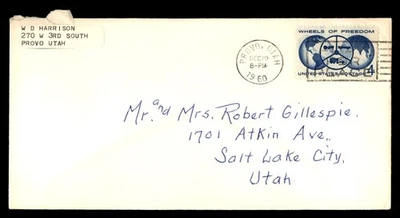 W D HARRISON
270 W 3RD SOUTH
PROVO UTAH
PROVO, UTAH
8-PM
1960
WHEELS OF FREEDOM
UNITED STATES POSTAGE
4
Mr. and Mrs. Robert Gillespie.
1701 Atkin Ave.,
Salt Lake City,
Utah